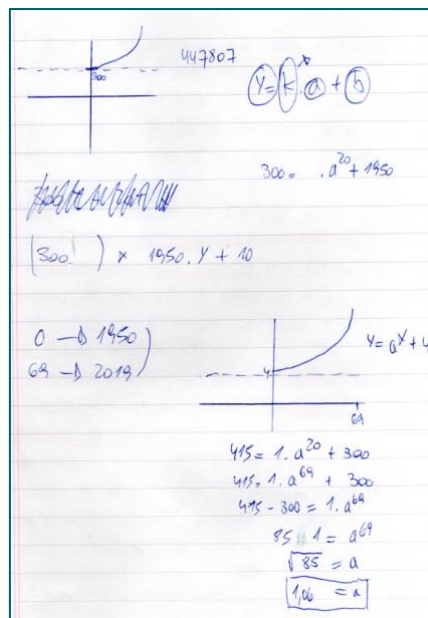 300
447807
y = k^x . a + b
300 = . a^20 + 1950
(300 ) x 1950 . y + 10
0 → 1950
69 → 2019
4
y = a^x + 4
69
415 = 1 . a^20 + 300
415 = 1 . a^69 + 300
415 - 300 = 1 . a^69
85 1 = a^69
√85 = a
1,06 = a